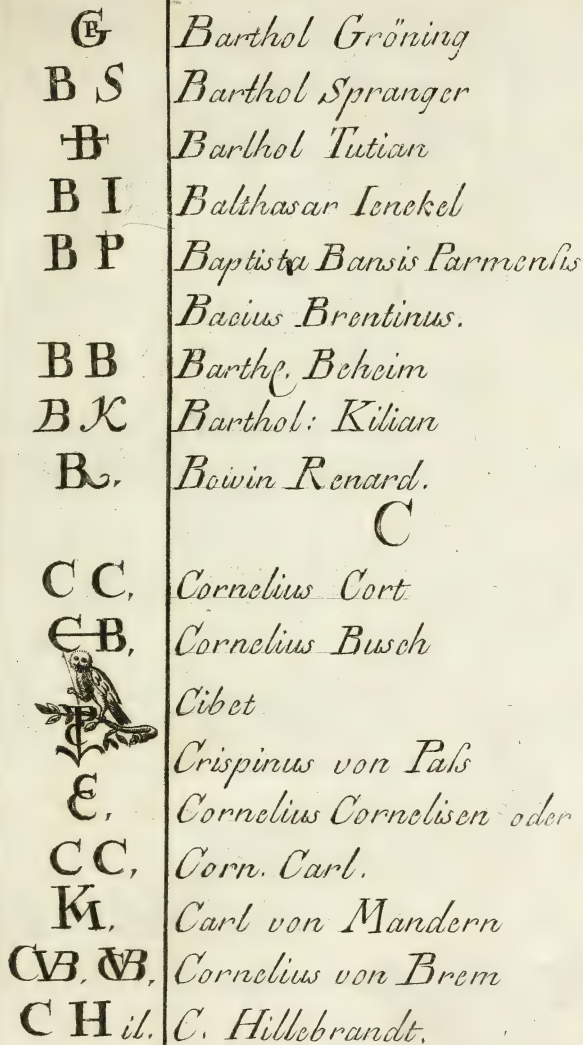 BG Barthol Gröning
B S Barthol Spranger
B Barthol Tutian
B I Balthasar Ienekel
B P Baptista Bansis Parmenſis
Bacius Brentinus.
B B Barthe. Beheim
B K Barthol: Kilian
BR. Boivin Renard.
C
C C, Cornelius Cort
CB, Cornelius Busch
Cibet
CP Crispinus von Paſs
CC, Cornelius Cornelisen oder
C C, Corn. Carl.
KM, Carl von Mandern
CVB. CVB, Cornelius von Brem
C H il. C. Hillebrandt.